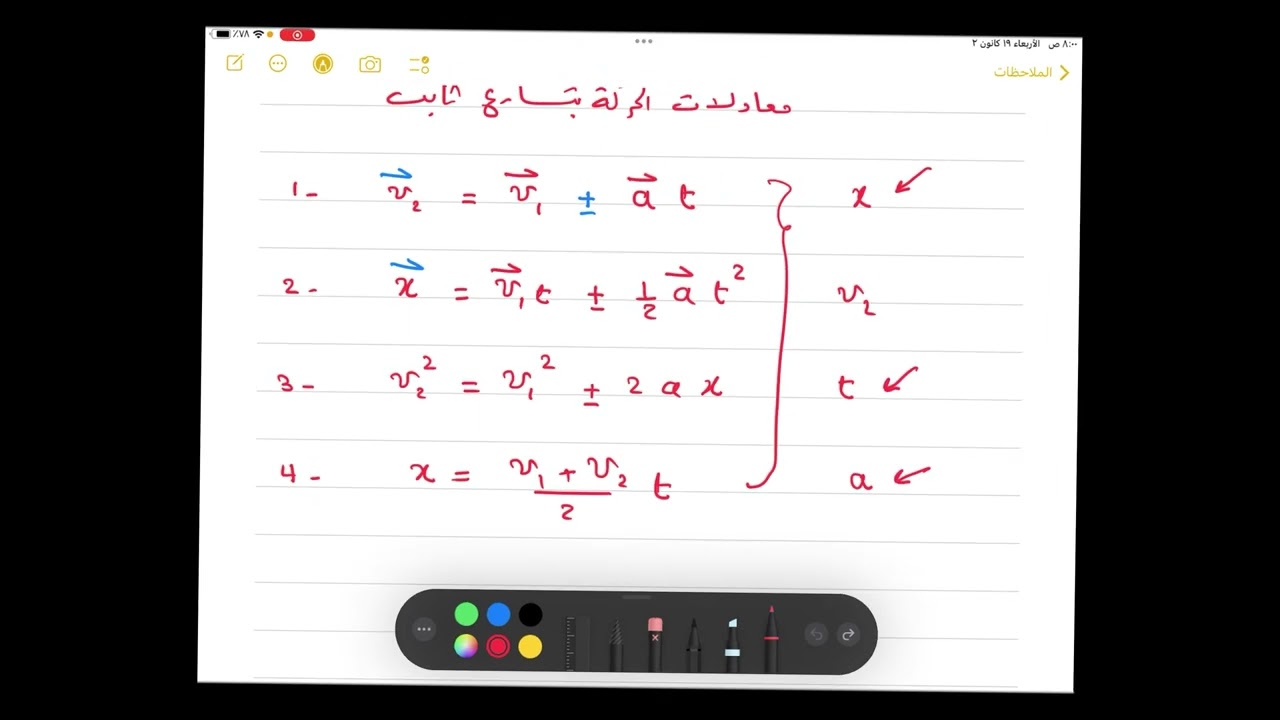 ٨:٠٠ ص الأربعاء ١٩ كانون ٢
٪٧٨
الملاحظات
معادلات الحركة بتسارع ثابت
1- v₂ = v₁ ± a t x
2- x = v₁t ± 1/2 a t² v₂
3- v₂² = v₁² ± 2 a x t
4- x = (v₁ + v₂)/2 t a